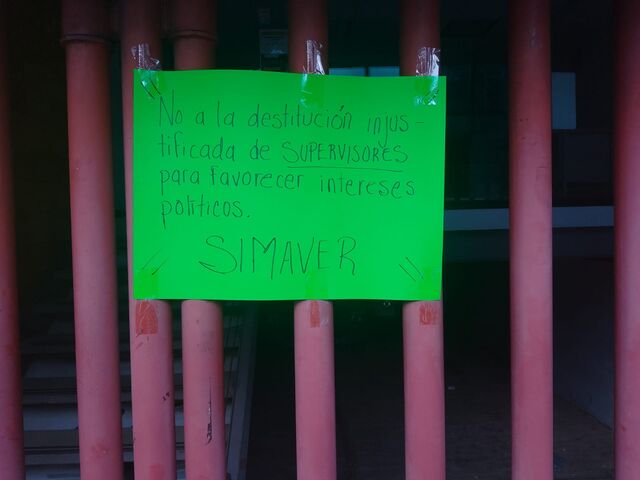 No a la destitución injus-
tificada de SUPERVISORES
para favorecer intereses
políticos.
SIMAVER